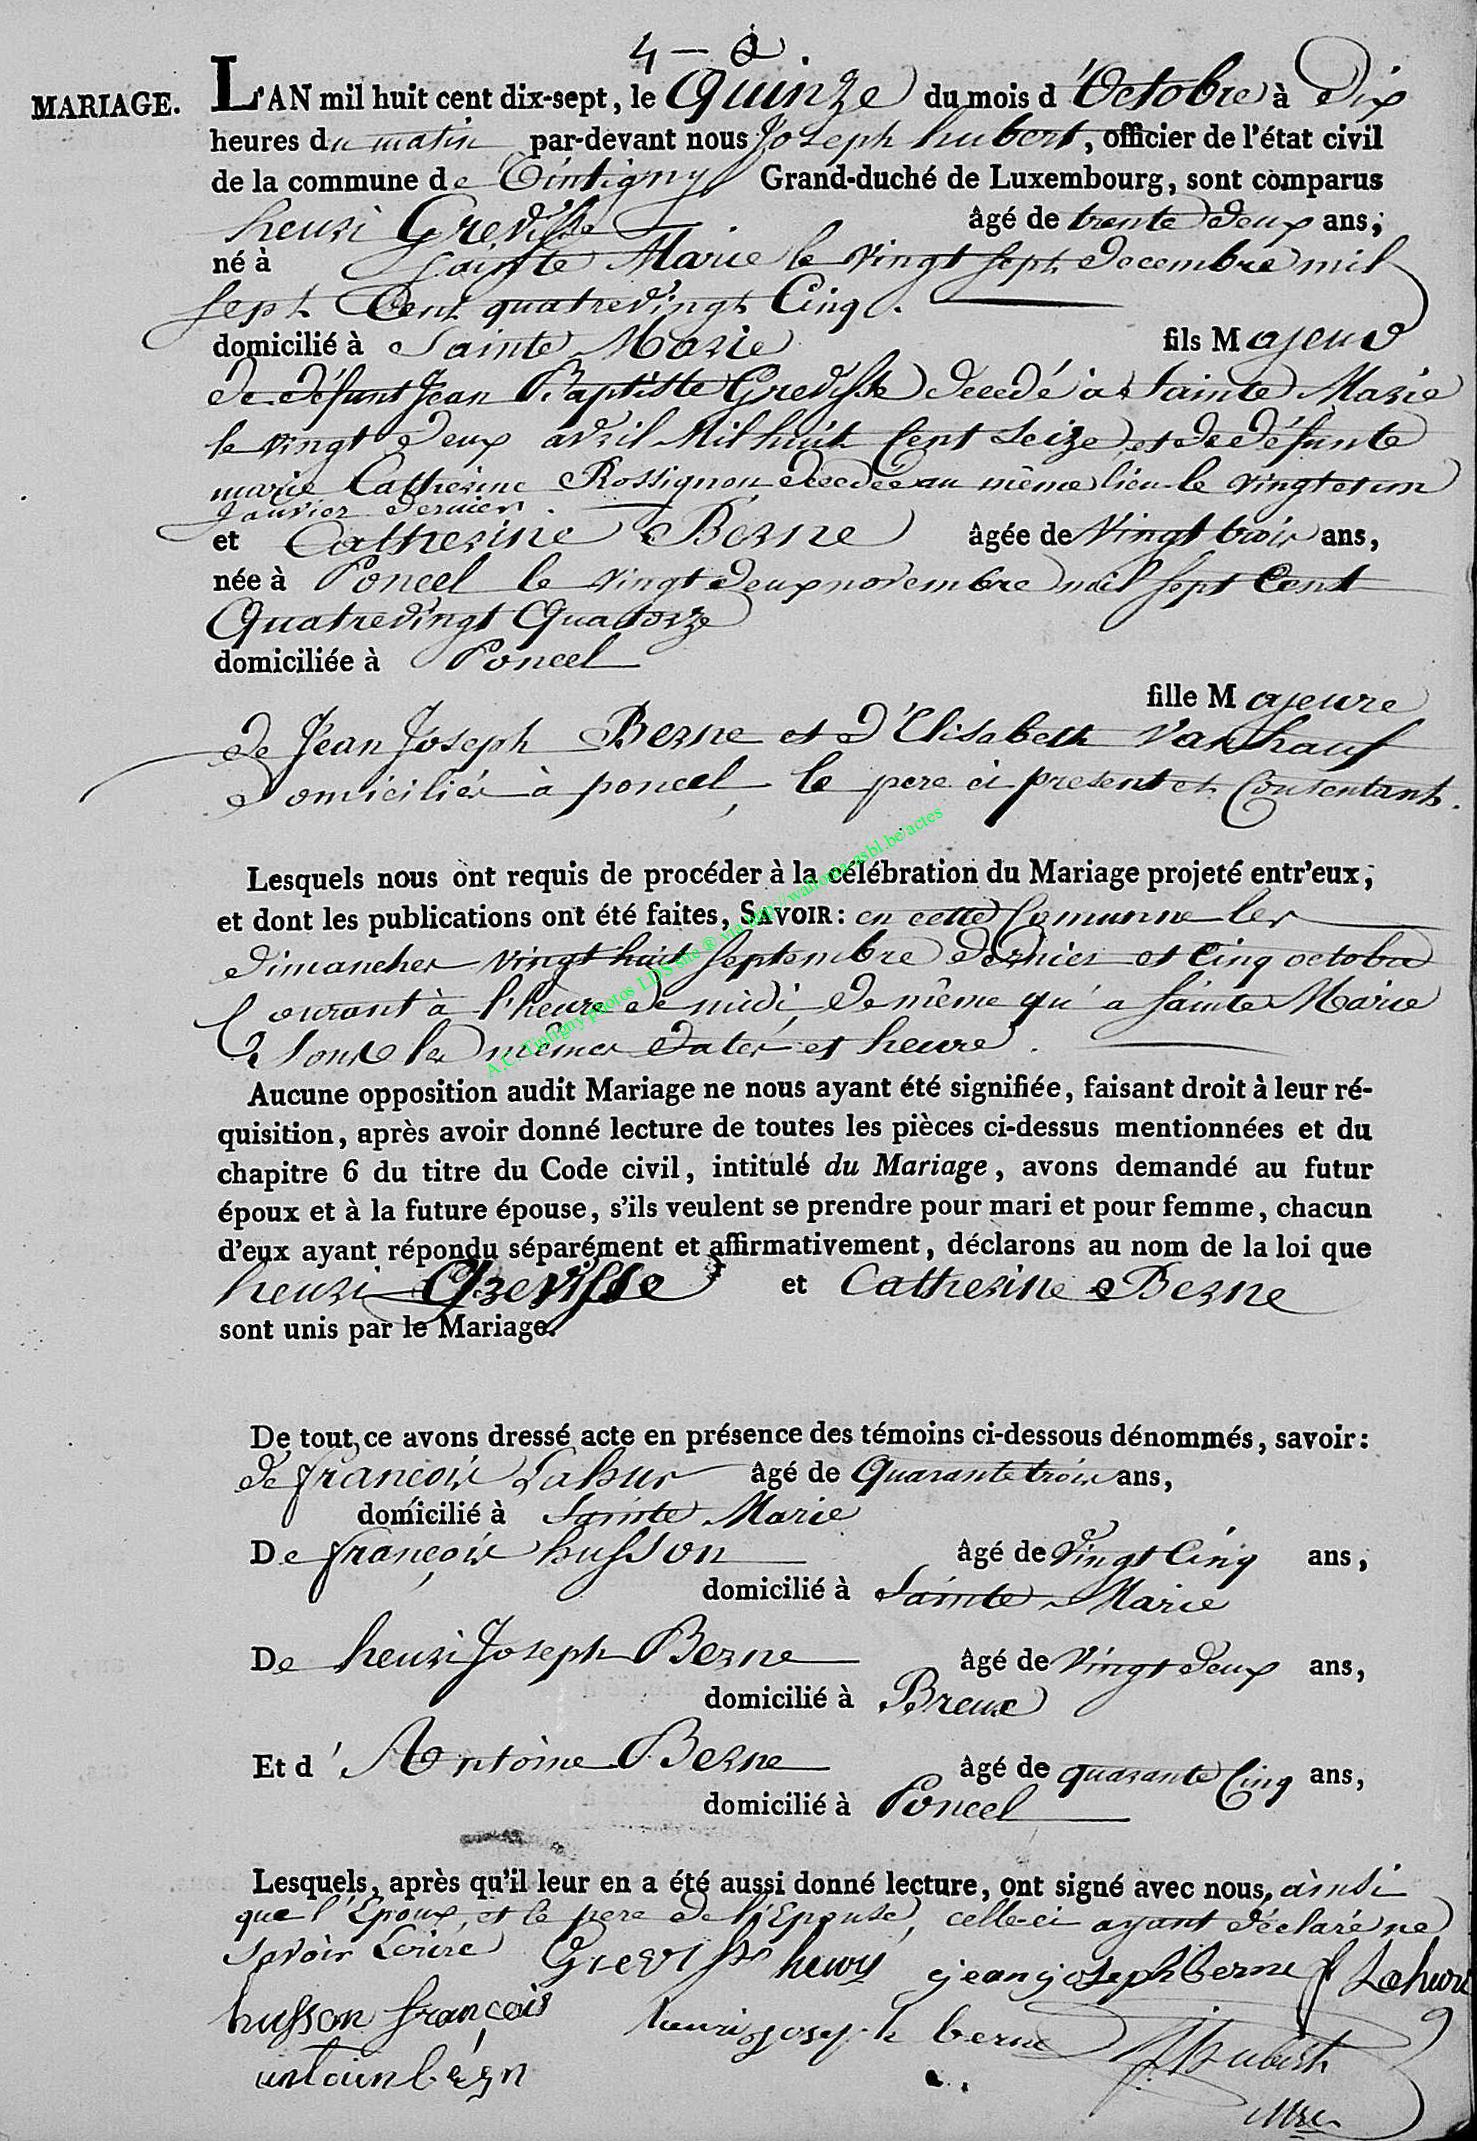 4 – a
MARIAGE. L'AN mil huit cent dix-sept, le Quinze du mois d'Octobre à Dix
heures du matin par-devant nous Joseph hubert, officier de l'état civil
de la commune de Tintigny Grand-duché de Luxembourg, sont comparus
henri Grevisse âgé de trente deux ans;
né à Sainte Marie le vingt sept decembre mil
sept Cent quatrevingt Cinq.
domicilié à Sainte Marie fils Majeur
de défunt Jean Baptiste Grevisse decedé à Sainte Marie
le vingt deux avril Mil huit Cent Seize, et de défunte
marie Catherine Rossignon decedée au même lieu le vingt et un
Janvier dernier.
et Catherine Berne âgée de Vingt trois ans,
née à Poncel le vingt deux novembre mil sept Cent
Quatrevingt Quatorze
domiciliée à Poncel
fille Majeure
de Jean Joseph Berne et d'Elisabeth Vanhauf
domiciliés à poncel, le pere ci present et Consentant.
Lesquels nous ont requis de procéder à la célébration du Mariage projeté entr'eux;
et dont les publications ont été faites, SAVOIR: en cette Comunne les
dimanches vingt huit septembre dernier et Cinq octobre
Courant à l'heure de midi, de même qu'a Sainte Marie
Sous les mêmes dates et heure.
Aucune opposition audit Mariage ne nous ayant été signifiée, faisant droit à leur ré-
quisition, après avoir donné lecture de toutes les pièces ci-dessus mentionnées et du
chapitre 6 du titre du Code civil, intitulé du Mariage, avons demandé au futur
époux et à la future épouse, s'ils veulent se prendre pour mari et pour femme, chacun
d'eux ayant répondu séparément et affirmativement, déclarons au nom de la loi que
henri Grevisse et Catherine Berne
sont unis par le Mariage.
De tout ce avons dressé acte en présence des témoins ci-dessous dénommés, savoir:
de françois Lahur âgé de Quarante trois ans,
domicilié à Sainte Marie
De françois husson âgé de Vingt Cinq ans,
domicilié à Sainte Marie
De henri Joseph Berne âgé de Vingt deux ans,
domicilié à Breux
Et d'Antoine Berne âgé de quarante Cinq ans,
domicilié à Poncel
Lesquels, après qu'il leur en a été aussi donné lecture, ont signé avec nous, ainsi
que l'Epoux, et le pere de l'Epouse, celle-ci ayant déclaré ne
Savoir Ecrire Grevisse henry jean joseph berne f Lahure
husson françois henri joseph berne J. hubert
antoin bern
A.C. Tintigny photos LDS site ® via http://wallonia-asbl.be/actes